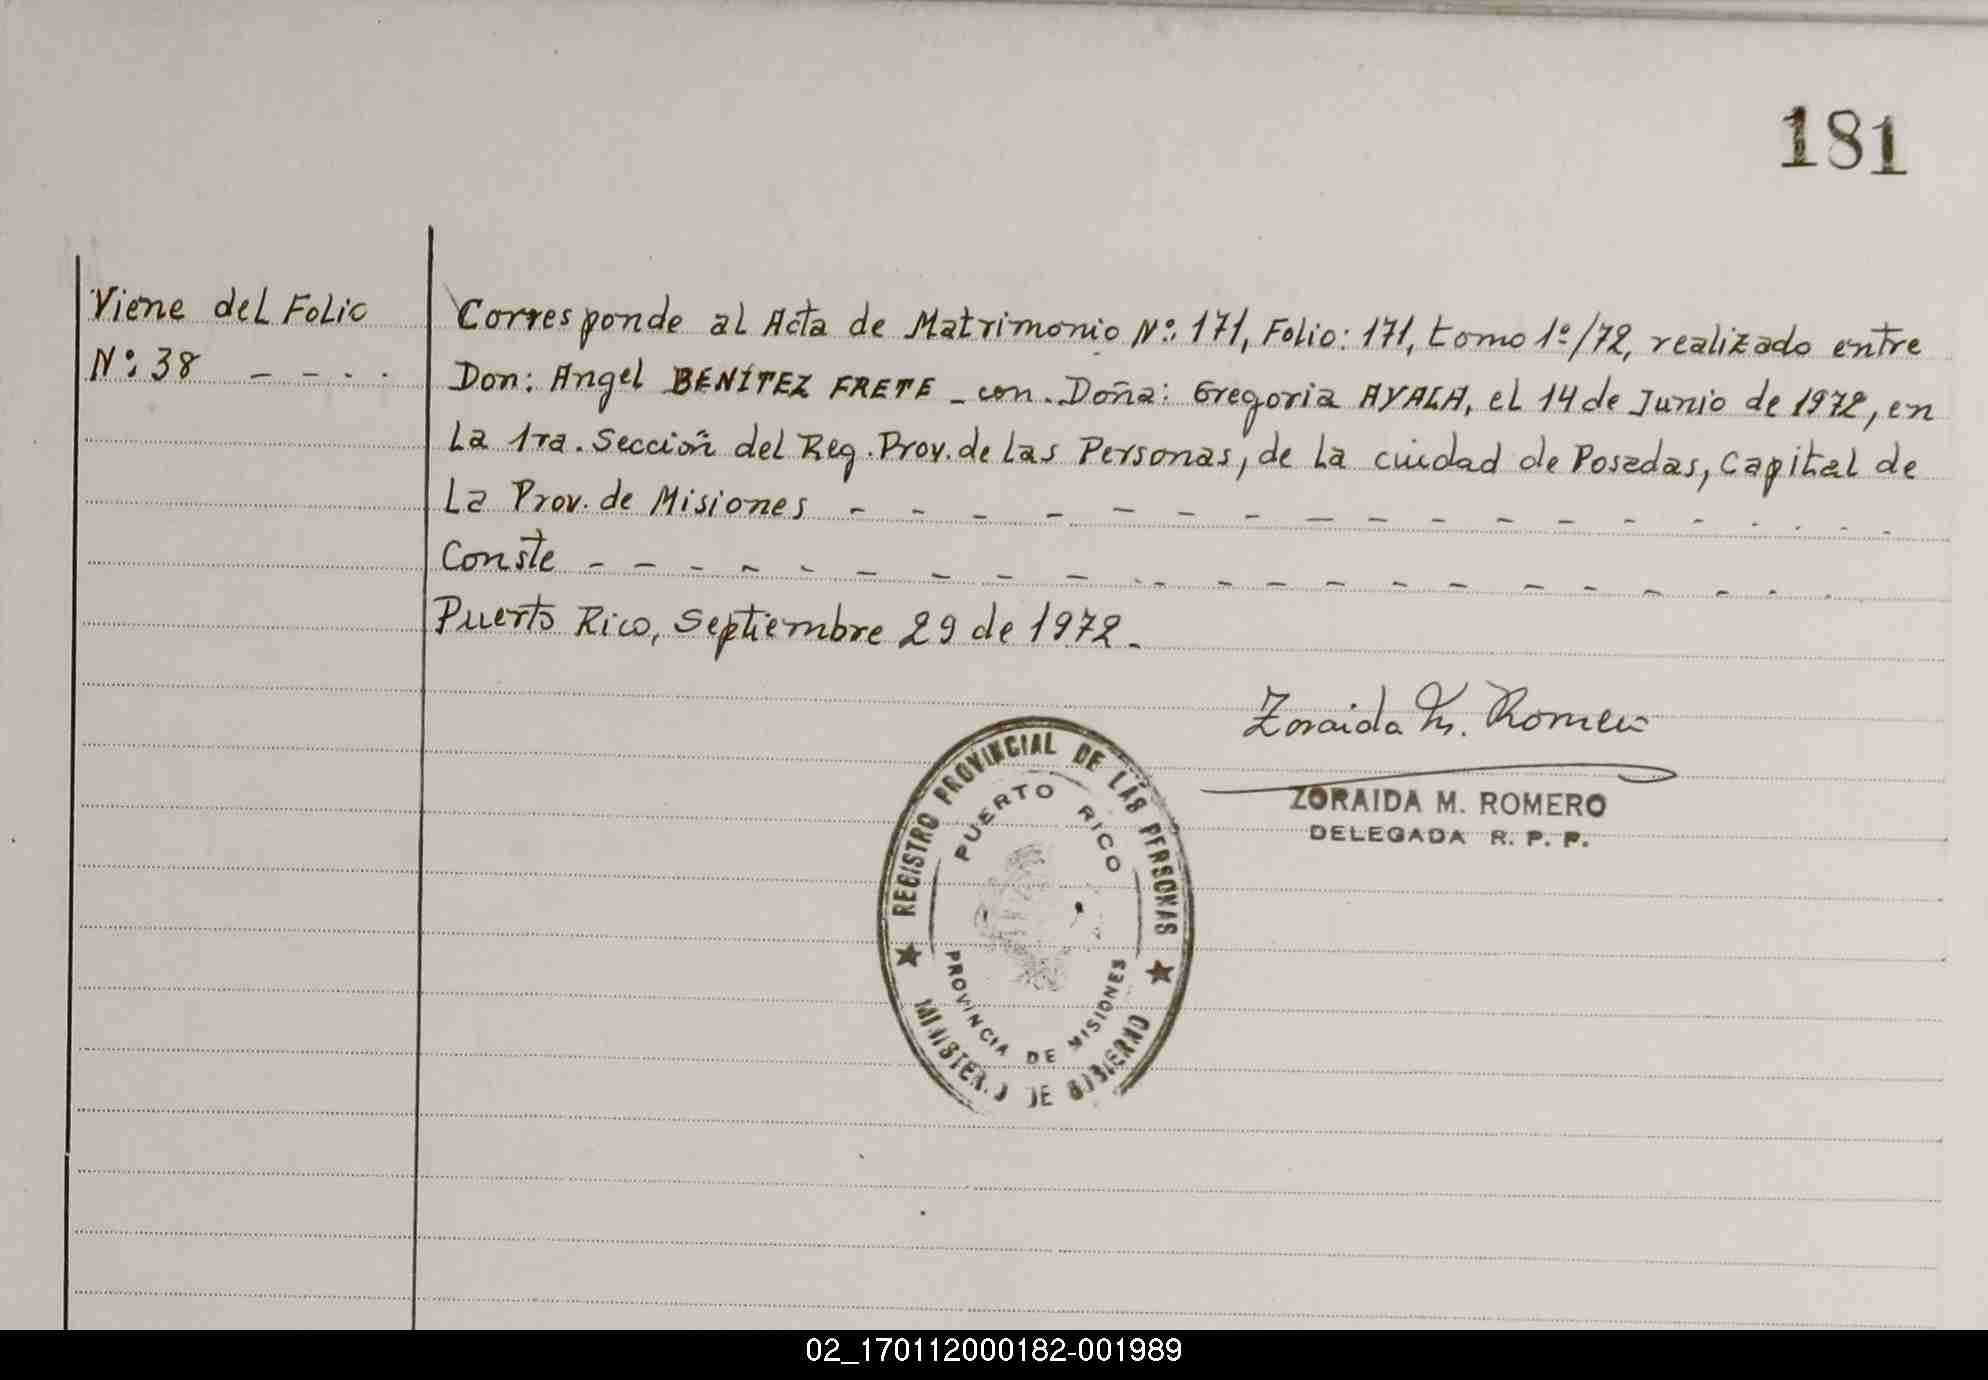 181
Viene del Folio
Nº: 38 - - - -
Corresponde al Acta de Matrimonio Nº: 171, Folio: 171, tomo 1º/72, realizado entre
Don: Angel BENÍTEZ FRETE - con. Doña: Gregoria AYALA, el 14 de Junio de 1972, en
La 1ra. Sección del Reg. Prov. de las Personas, de la ciudad de Posadas, Capital de
La Prov. de Misiones - - - - - - - - - - - - - - - - -
Conste - - - - - - - - - - - - - - - - - - - -
Puerto Rico, Septiembre 29 de 1972.-
Zoraida M. Romero
ZORAIDA M. ROMERO
DELEGADA R. P. P.
REGISTRO PROVINCIAL DE LAS PERSONAS
PUERTO RICO
PROVINCIA DE MISIONES
MINISTERIO DE GOBIERNO
02_170112000182-001989